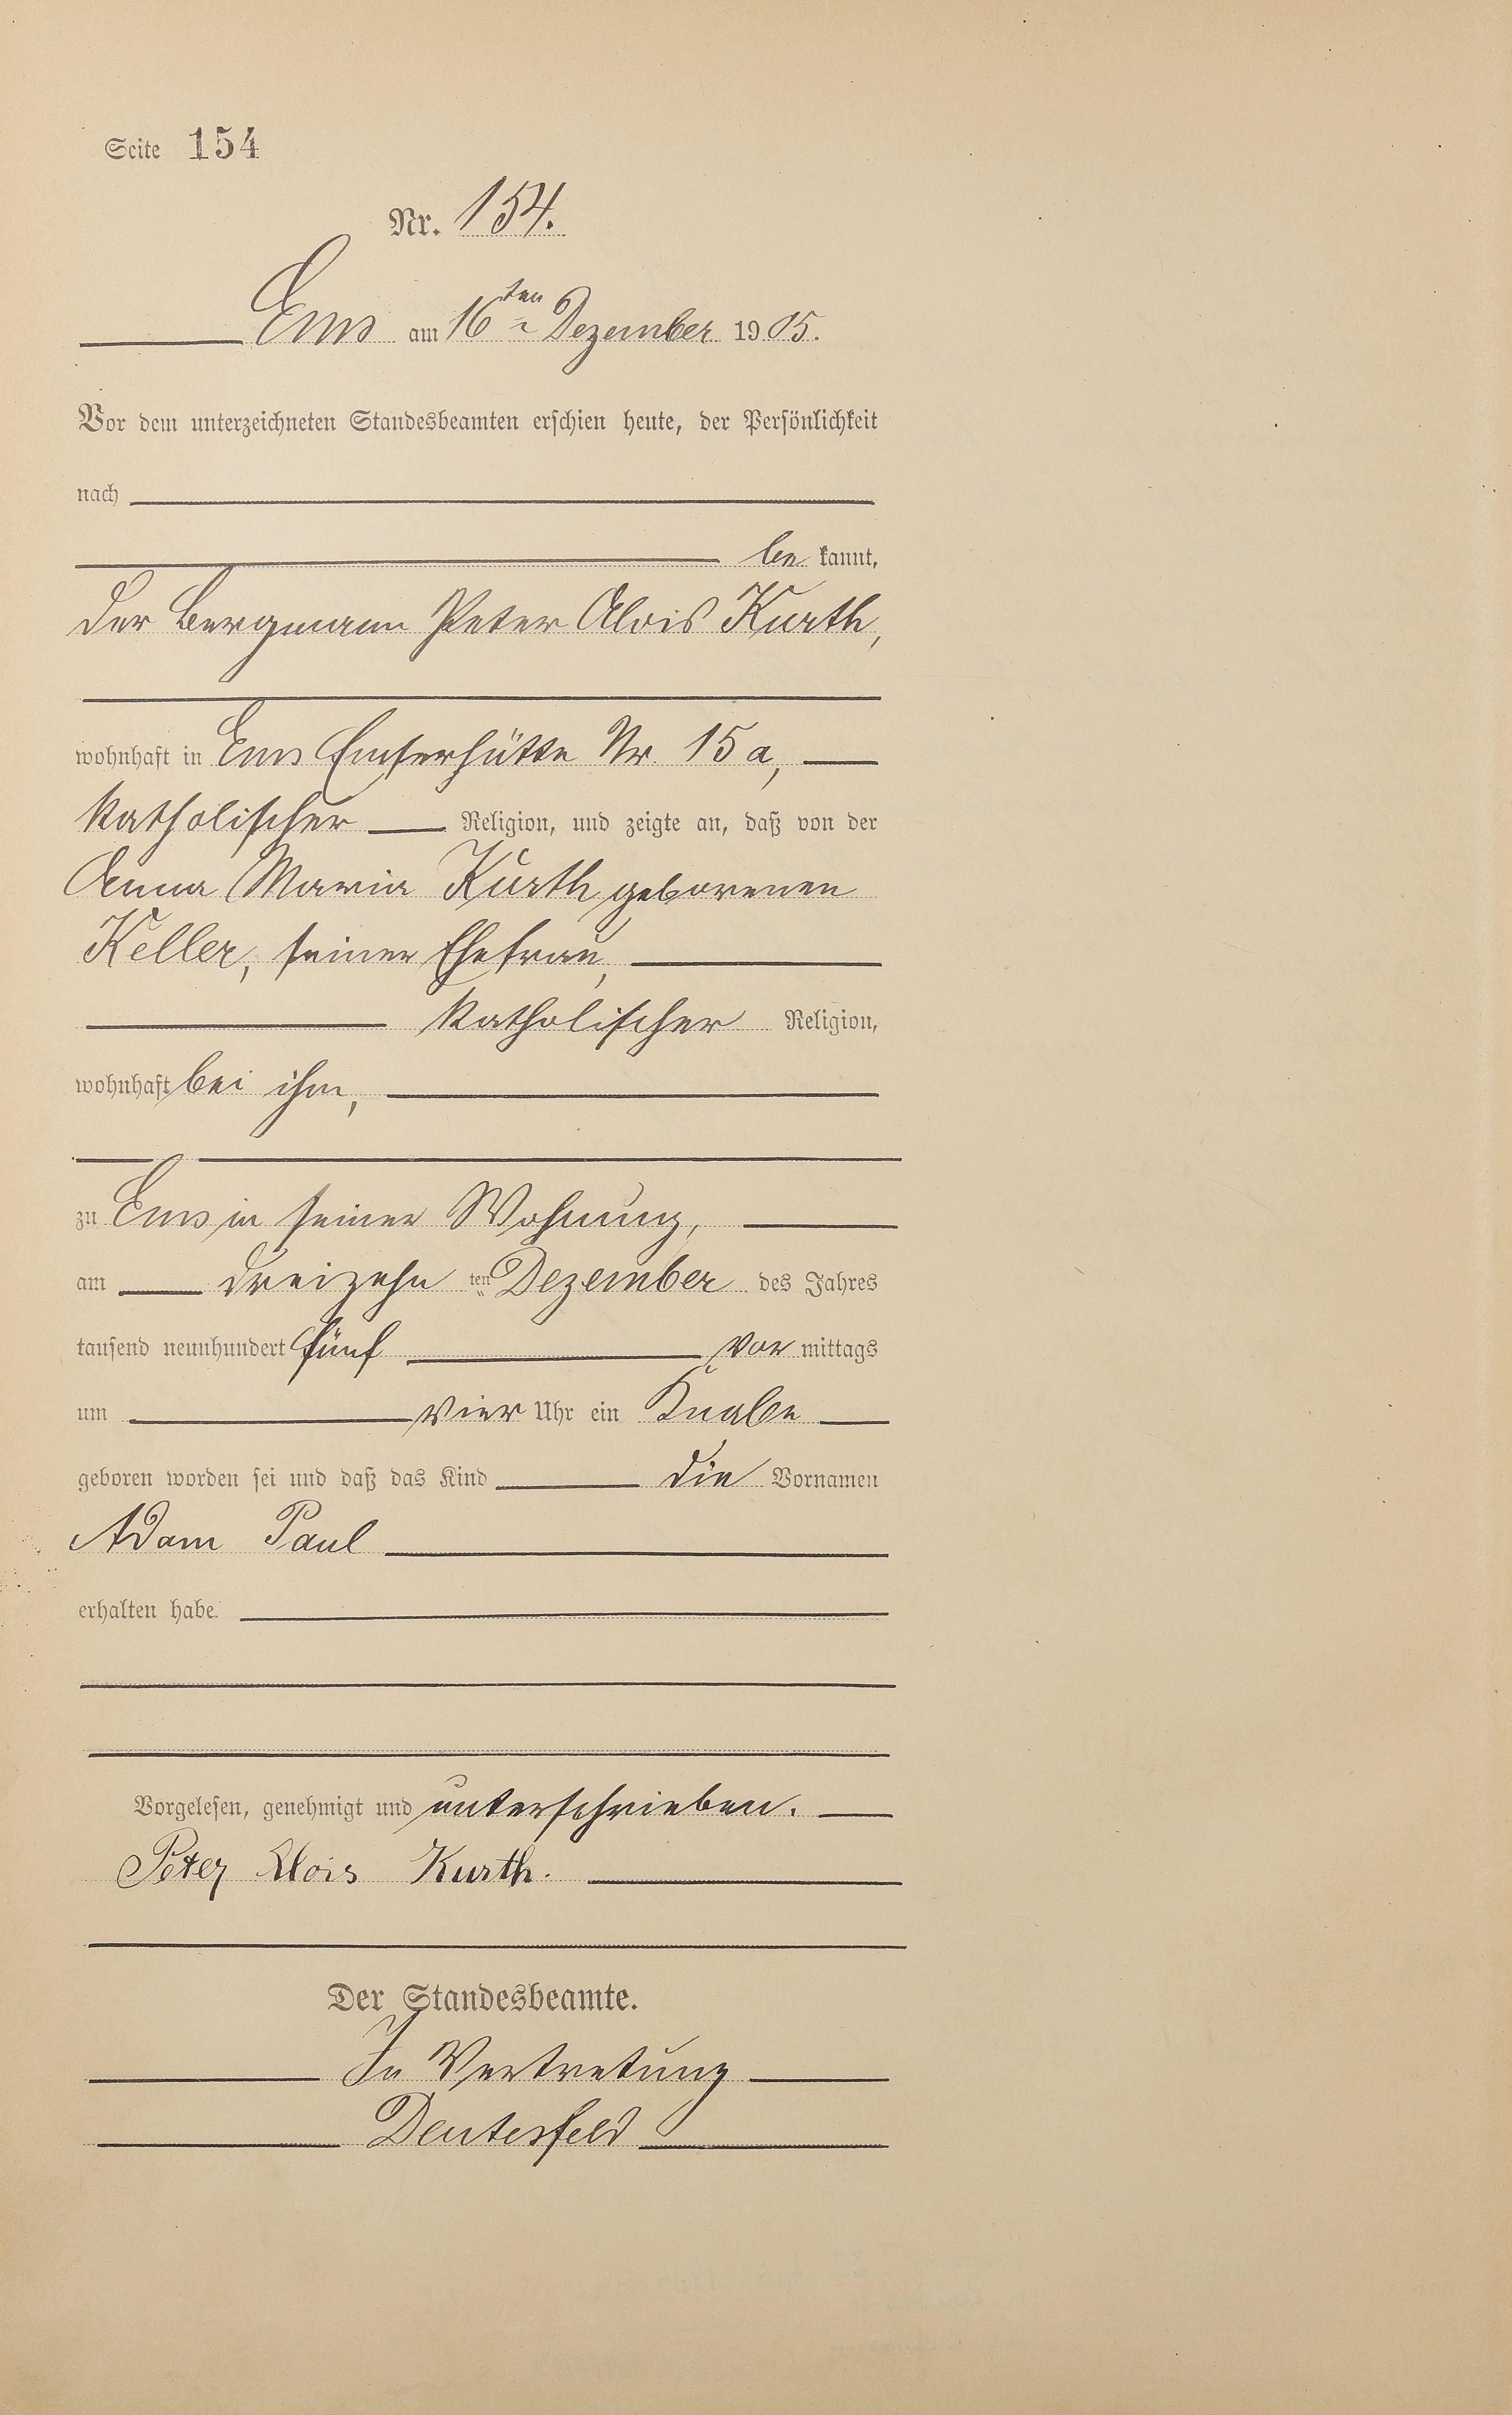 Seite 154
Nr. 154.
Ems am 16ten Dezember 1905.
Vor dem unterzeichneten Standesbeamten erschien heute, der Persönlichkeit
nach
be kannt,
der Bergmann Peter Alois Kurth,
wohnhaft in Ems Emserhütte Nr. 15a,
katholischer Religion, und zeigte an, daß von der
Anna Maria Kurth geborenen
Keller, seiner Ehefrau,
katholischer Religion,
wohnhaft bei ihm,
zu Ems in seiner Wohnung,
am dreizehn ten Dezember des Jahres
tausend neunhundert fünf vor mittags
um vier Uhr ein Knabe
geboren worden sei und daß das Kind die Vornamen
Adam Paul
erhalten habe.
Vorgelesen, genehmigt und unterschrieben.
Peter Alois Kurth.
Der Standesbeamte.
In Vertretung
Deutesfeld